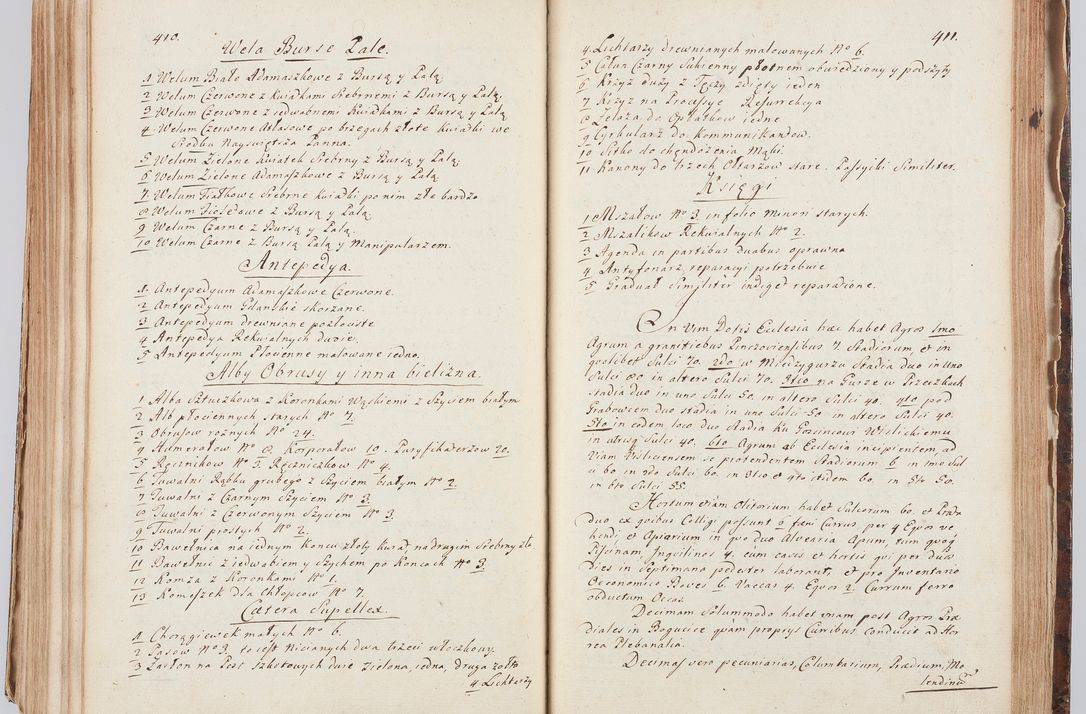 410.
Wela Burse Pale.
1 Welum Białe Adamaszkowe z Bursą y Palą.
2 Welum Czerwone z kwiatkami Srebrnemi z Bursą y Palą.
3 Welum Czerwone z iedwabnemi kwiatkami z Bursą y Palą
4. Welum Czerwone Atłasowe po brzegach złote kwiatki we
Srodku Nayswiętsza Panna.
5 Welum Zielone kwiatek Srebrny z Bursą y Palą.
6 Welum Zielone Adamaszkowe z Bursą y Palą
7. Welum Fiałkowe Srebrne kwiatki po nim złe bardzo
8 Welum z Bursą y Palą.
9 Welum Czarne z Bursą y Palą.
10 Welum Czarne z Bursą Palą y Manipularzem.
Antepedya.
1. Antepedyum Adamaszkowe Czerwone.
2 Antepedyum Gdanskie skorzane.
3 Antepedyum drewniane pozłouste
4 Antepedya Rekwialnych dwie.
5 Antepedyum Płocienne malowane iedno.
Alby Obrusy y inna bielizna.
1 Alba Sztuczkowa z Koronkami Wąskiemi z Szyciem białym
2 Alb płociennych starych No 7.
3 Obrusow roznych No 24.
4 Humerałow No 8. Korporałow 10. Puryfikaterzow 20.
5 Ręcznikow No 3. Ręczniczkow No 4.
6 Tuwalni Rąbku grubego z Szyciem białym No 2.
7 Tuwalni z Czarnym Szyciem No 3.
8 Tuwalni z Czerwonym Szyciem No 3.
9 Tuwalni prostych No 2.
10 Bawełnica na iednym koncu złoty kurat na drugim Srebrny złe
11 Bawełnic z iedwabiem y Szychem po Koncach No 3.
12 Komża z Koronkami No 1.
13 Komeszek dla Chłopcow No 7.
Cætera Supellex.
1. Chorągiewek małych No 6.
2 Pasow No 3. to iest Nicianych dwa trzeci włoczkowy.
3 Zasłon na Post Szkotowych dwie Zielona iedna, druga zołta
4. Lichtarzy
411.
4. Lichtarzy drewnianych malowanych No 6.
5 Całun Czarny Sukienny płotnem obwiedziony y podszyty
6 Krzyż duży z Tęczy zdięty ieden
7 Krzyż na Processye Resurrekcya
8 Zelaza do Opłatkow iedne
9 Cyrkularz do Kommunikantow.
10 Sitko do chendozenia Mąki.
11 Kanony do trzech Ołtarzow stare. Passyiki Similiter.
Księgi
1 Mszałow No 3 in folio Minori starych.
2 Mszalikow Rekwialnych No 2.
3 Agenda in partibus duabus oprawna
4 Antyfonarz reparacyi potrzebuie
5 Graduał Similiter indiget reparatione.
In Vim Dotis Ecclesia hæc habet Agros 1mo
Agrum a granitiebus Pinczoviensibus 7 Stadiorum, et in
quolibet Sulci 70. 2do w Miedzygurzu Stadia duo in Uno
Sulci 80 in altero Sulci 70. 3tio na Gurze w Przeczkach
Stadia duo in uno Sulci 50. in altero Sulci 40. 4to pod
Grabowcem duo stadia in uno Sulci 50 in altero Sulci 40.
5to in eodem loco duo Stadia ku Goscincowi Wislickiemu
in utroq Sulci 40. 6to Agrum ab Ecclesia incipientem, ad
Viam Visliciensem se protendentem Stadiorum 6 in 1mo Sul
ci 60 in 2do Sulci 60. in 3tio et 4to itidem 60. in 5to 50.
in 6to Sulci 55.
Hortum etiam Olitorium habet Sulcorum 60. et Prata
duo ex quibus Colligi possunt 8 fæni Currus per 4 Equos ve
hendi, et Apiarium in quo duo Alvearia Apum, tum quoq
Piscinam, Inquilinos 4. cum casis et hortis qui per duas
dies in Septimana pedester laborant, et pro Inventario
Oeconomico Boves 6. Vaccas 4. Equos 2. Currum ferro
obductum
Decimam Solummodo habet unam post Agros Præ
diales in Bogucice quam proprys Curribus Conducit ad Hor
rea Plebanalia.
Decimas vero pecuniarias, Columbarium, Prædium, Mo
lendinum